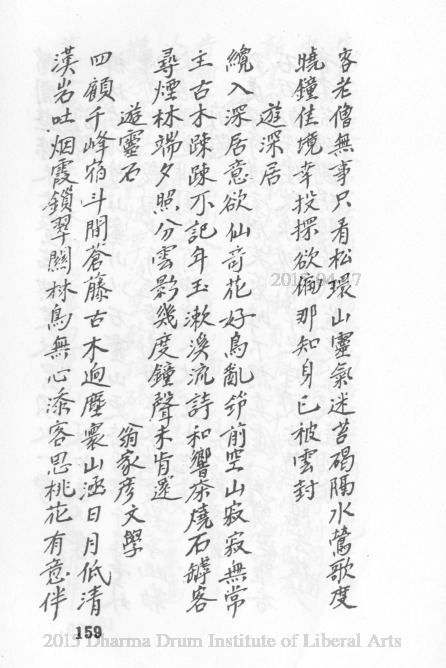 客老僧無事只看松環山靈氣迷苔碣隔水鶯歌度
曉鐘佳境幸投探欲徧那知身已被雲封
遊深居
纔入深居意欲仙奇花好鳥亂筇前空山寂寂無常
主古木疎疎不記年玉漱溪流詩和響茶燒石罅客
尋煙林端夕照分雲影幾度鐘聲未肯還
遊靈石 翁家彥文學
四顧千峰宿斗間蒼藤古木迥塵寰山涵日月低清
漢岩吐烟霞鎖翠關林鳥無心添客思桃花有意伴
159
2017-04-27
2013 Dharma Drum Institute of Liberal Arts